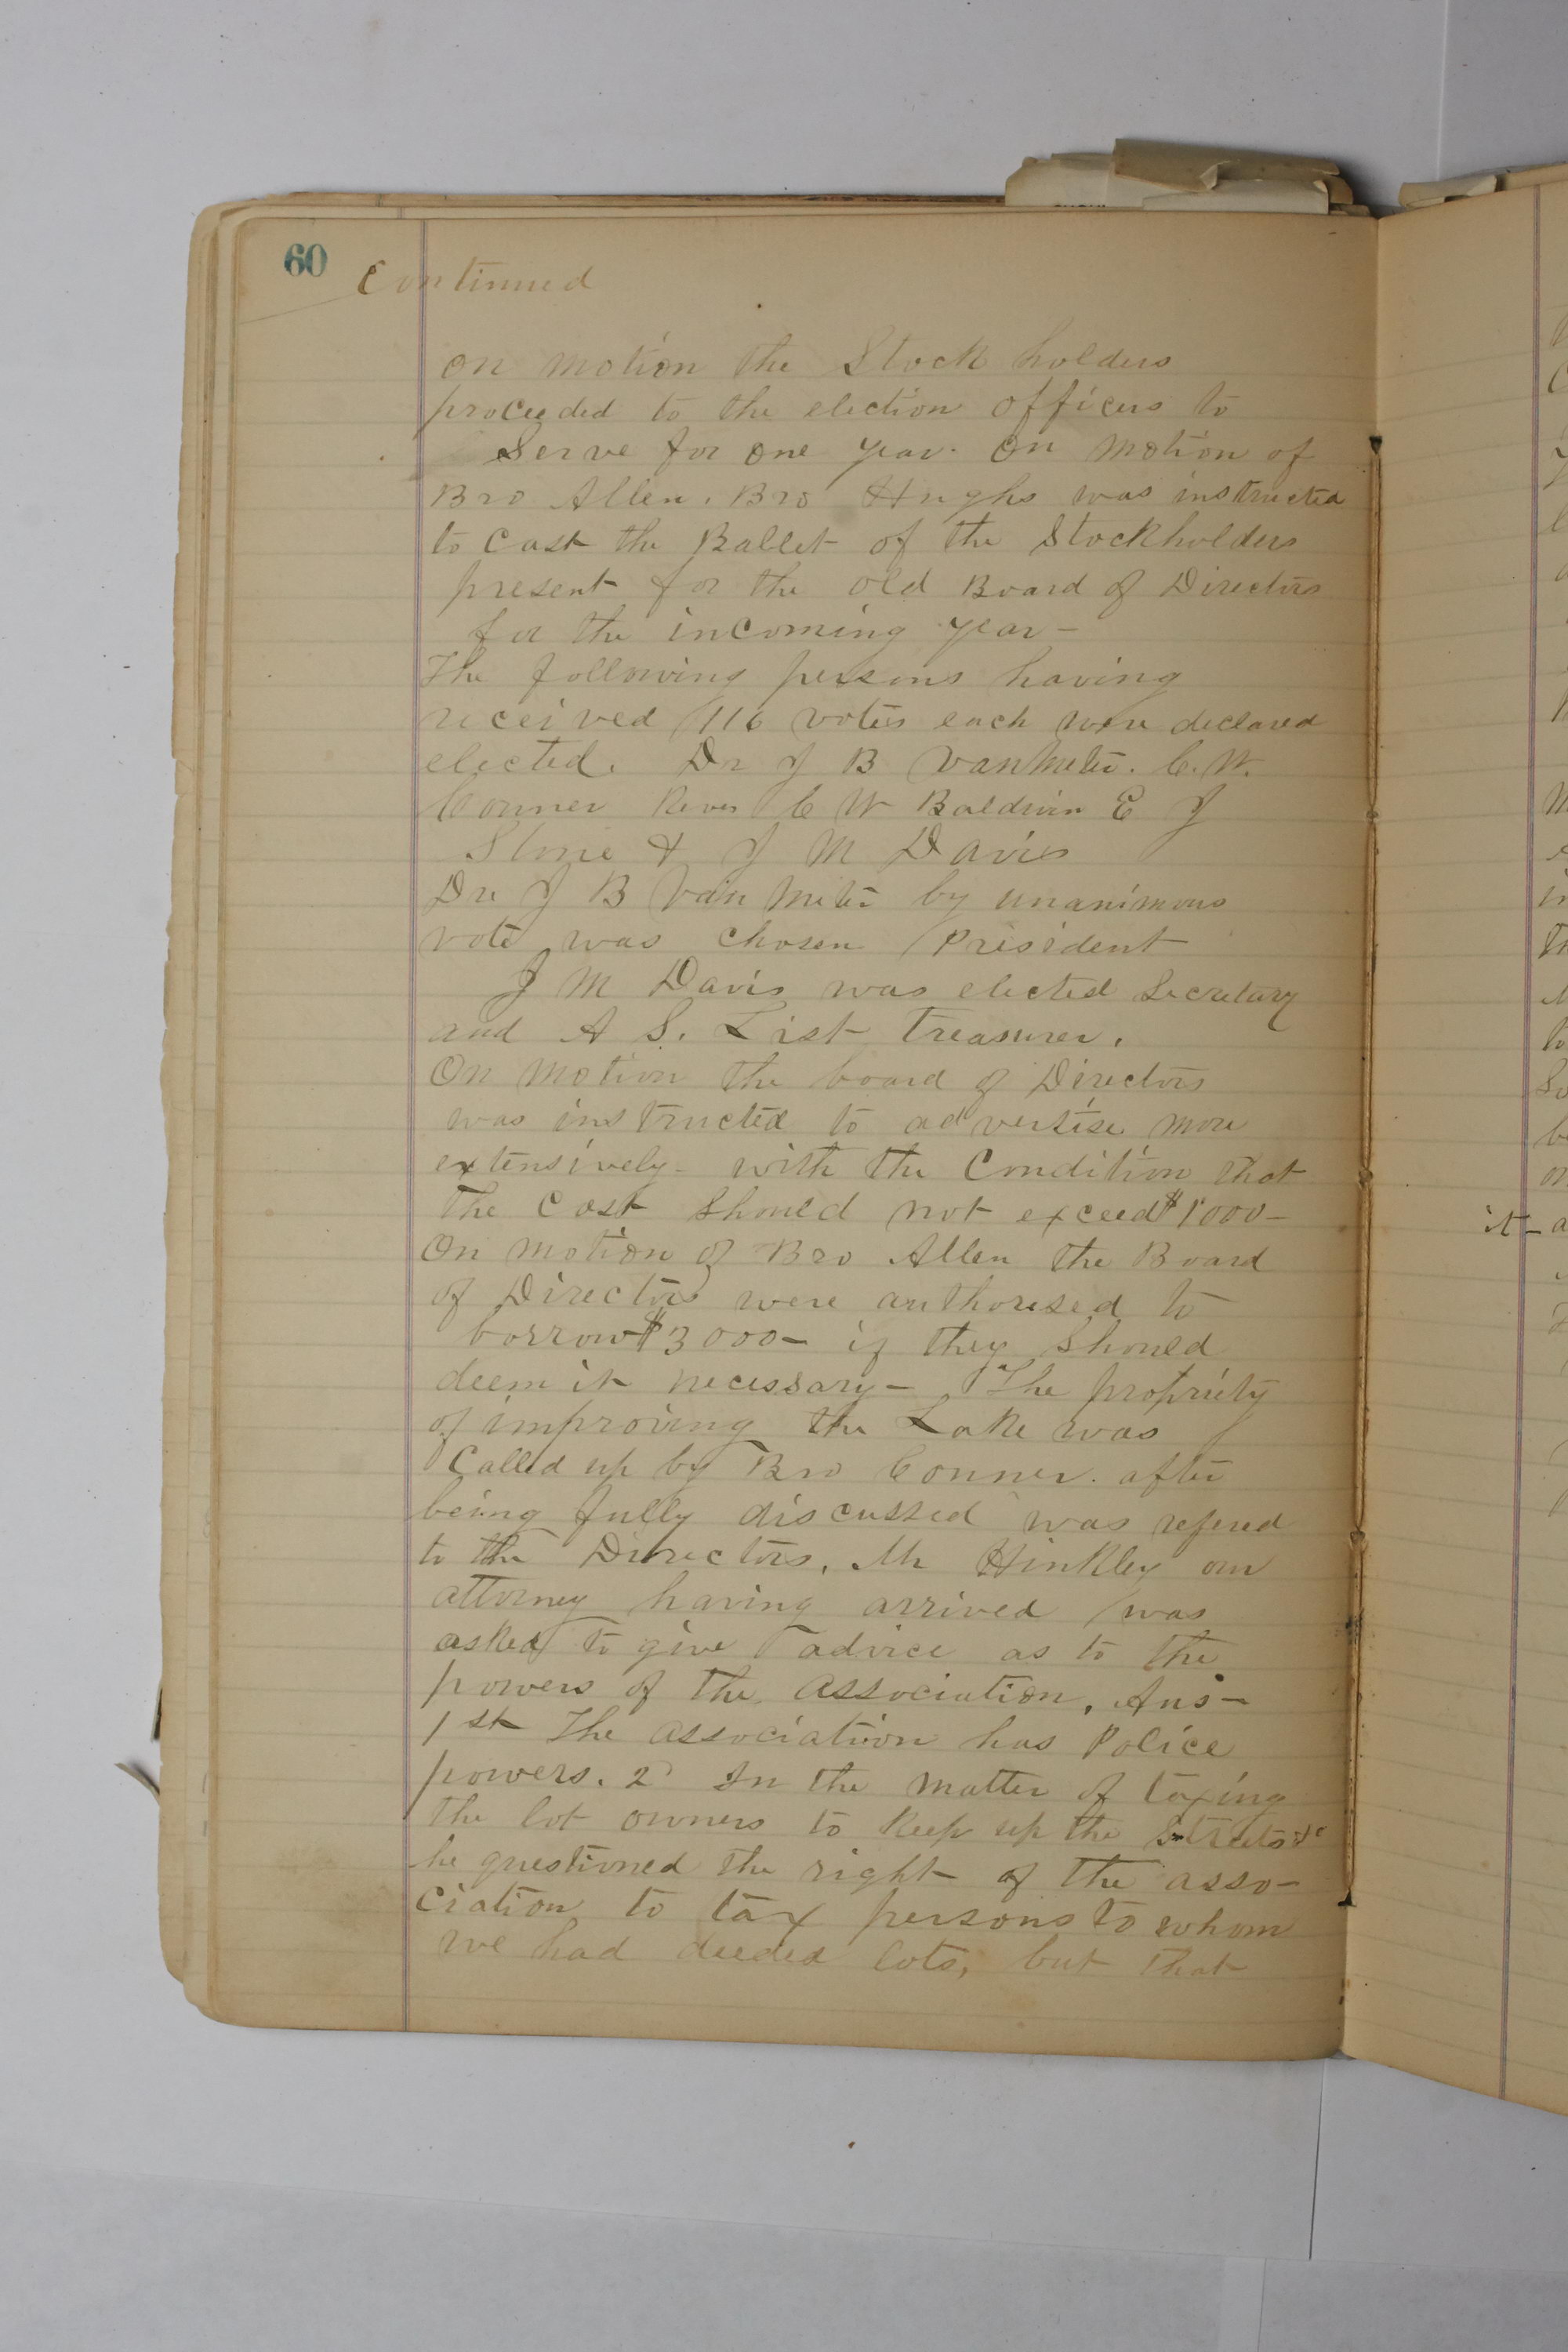 60
Continued
on motion the Stock holders
proceeded to the election officers to
Serve for one year. On motion of
Bro Allen. Bro Hughs was instructed
to Cast the Ballet of the Stockholders
present for the old Board of Directors
for the incoming year-
The following persons having
received 116 votes each were declared
elected. Dr J B VanMeter. C. W.
Conner C W Baldwin E J
Stone & J M Davis
Dr J B Van Meter by unanimous
vote was chosen President
J M Davis was elected Secretary
and A S. List Treasurer.
On motion the board of Directors
was instructed to advertise more
extensively- with the Condition that
the Cost Should not exceed $1000-
On motion of Bro Allen the Board
of Directors were authorised to
borrow $3000- if they Should
deem it necessary- The propriety
of improving the Lake was
Called up by Bro Conner. after
being fully discussed was refered
to the Directors. Mr Hinkley our
attorney having arrived was
asked to give advice as to the
powers of the association. Ans-
1st The association has Police
powers. 2d In the matter of taxing
the lot owners to Keep up the Streets &c
he questioned the right of the asso-
ciation to tax persons to whom
we had deeded lots, but that
it-